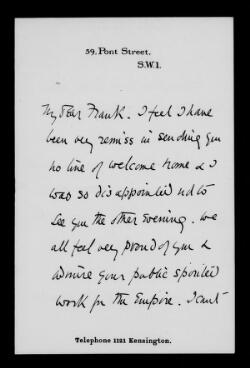 59, Pont Street.
S.W.1.
My dear Frank. I feel I have
been very remiss in sending you
no line of welcome home & I
was so disappointed not to
see you the other evening. We
all feel very proud of you &
admire your public spirited
work for the Empire. I can't
Telephone 1121 Kensington.